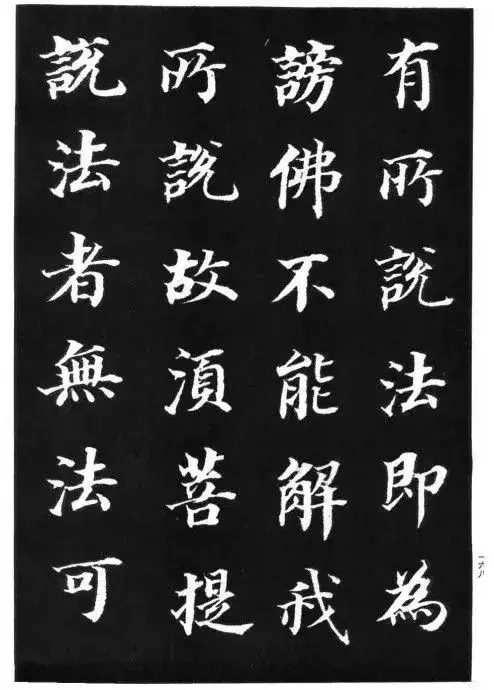 有所說法即為
謗佛不能解我
所說故須菩提
說法者無法可
一六八